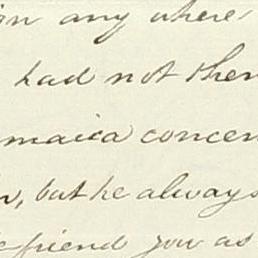 on any where
had not then
maica concer
n, but he always
efriend you as